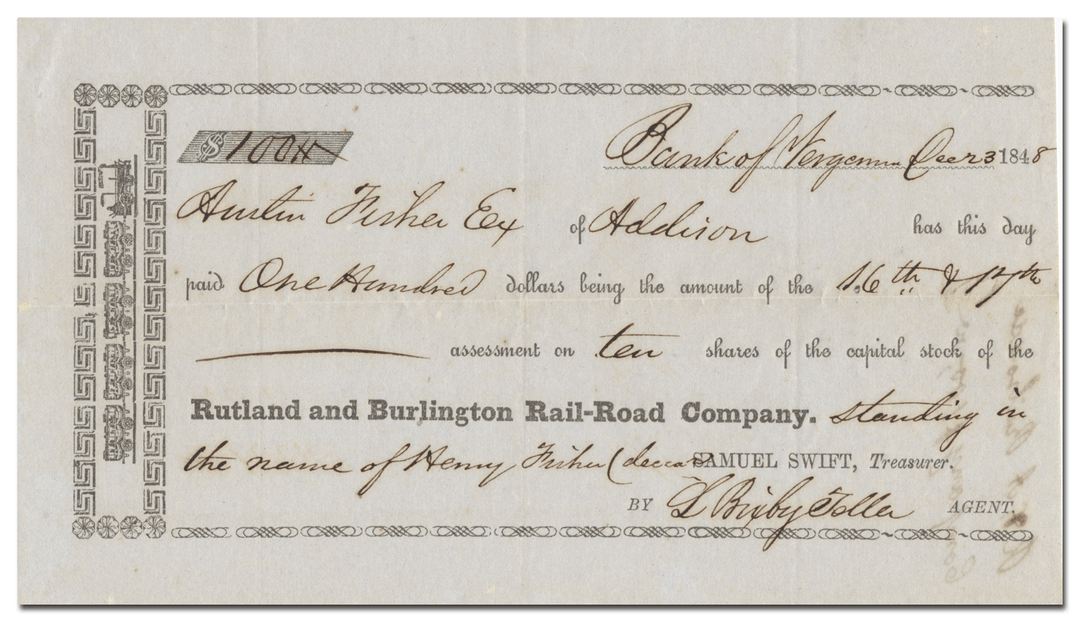 $ 100
Bank of Vergennes Decr 3 1848
Austin Fisher Ex of Addison has this day
paid One Hundred dollars being the amount of the 16th & 17th
assessment on ten shares of the capital stock of the
Rutland and Burlington Rail-Road Company. standing in
the name of Henry Fisher (deceasd SAMUEL SWIFT, Treasurer.
BY L Bixby Teller AGENT.